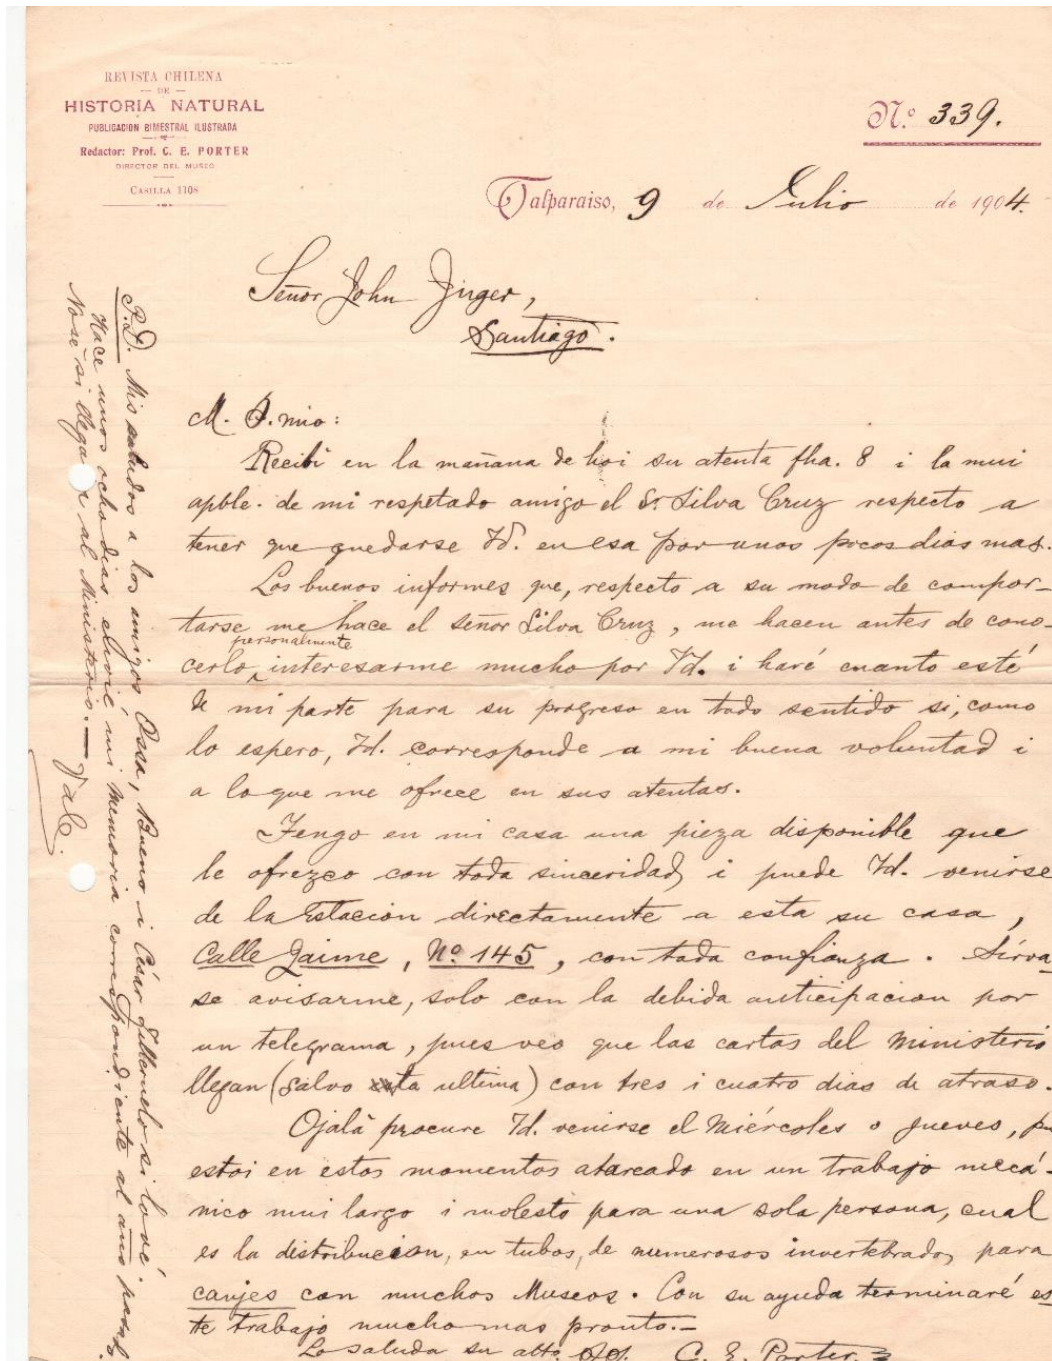 REVISTA CHILENA
— DE —
HISTORIA NATURAL
PUBLICACION BIMESTRAL ILUSTRADA
Redactor: Prof. C. E. PORTER
DIRECTOR DEL MUSEO
CASILLA 1108
N.º 339.
Valparaiso, 9 de Julio de 1904.
Señor John
Santiago.
M. S. mio:
Recibi en la mañana de hoi su atenta fha. 8 i la mui
apble. de mi respetado amigo el Sr Silva Cruz respecto a
tener que quedarse Vd. en esa por unos pocos dias mas.
Los buenos informes que, respecto a su modo de compor-
tarse me hace el señor Silva Cruz, me hacen antes de cono-
cerlo personalmente interesarme mucho por Vd. i haré cuanto esté
de mi parte para su progreso en todo sentido si, como
lo espero, Vd. corresponde a mi buena voluntad i
a lo que me ofrece en sus atentas.
Tengo en mi casa una pieza disponible que
le ofrezco con toda sinceridad, i puede Vd. venirse
de la Estacion directamente a esta su casa,
Calle Jaime, Nº 145, con toda confianza. Sírva
se avisarme, solo con la debida anticipacion por
un telegrama, pues veo que las cartas del Ministerio
llegan (salvo esta ultima) con tres i cuatro dias de atraso.
Ojalá procure Vd. venirse el Miércoles o Jueves, pu
estoi en estos momentos atareado en un trabajo mecá-
nico mui largo i molesto para una sola persona, cual
es la distribucion, en tubos, de numerosos invertebrados para
canjes con muchos Museos. Con su ayuda terminaré es
te trabajo mucho mas pronto.—
Lo saluda su atto. C. E. Porter.
P.D. Mis saludos a los amigos Ossa, Bueno i César si lo vé.
Hace unos ocho dias envié mi Memoria correspondiente al año pasado.
No sé si llega al Ministerio.— Vale.